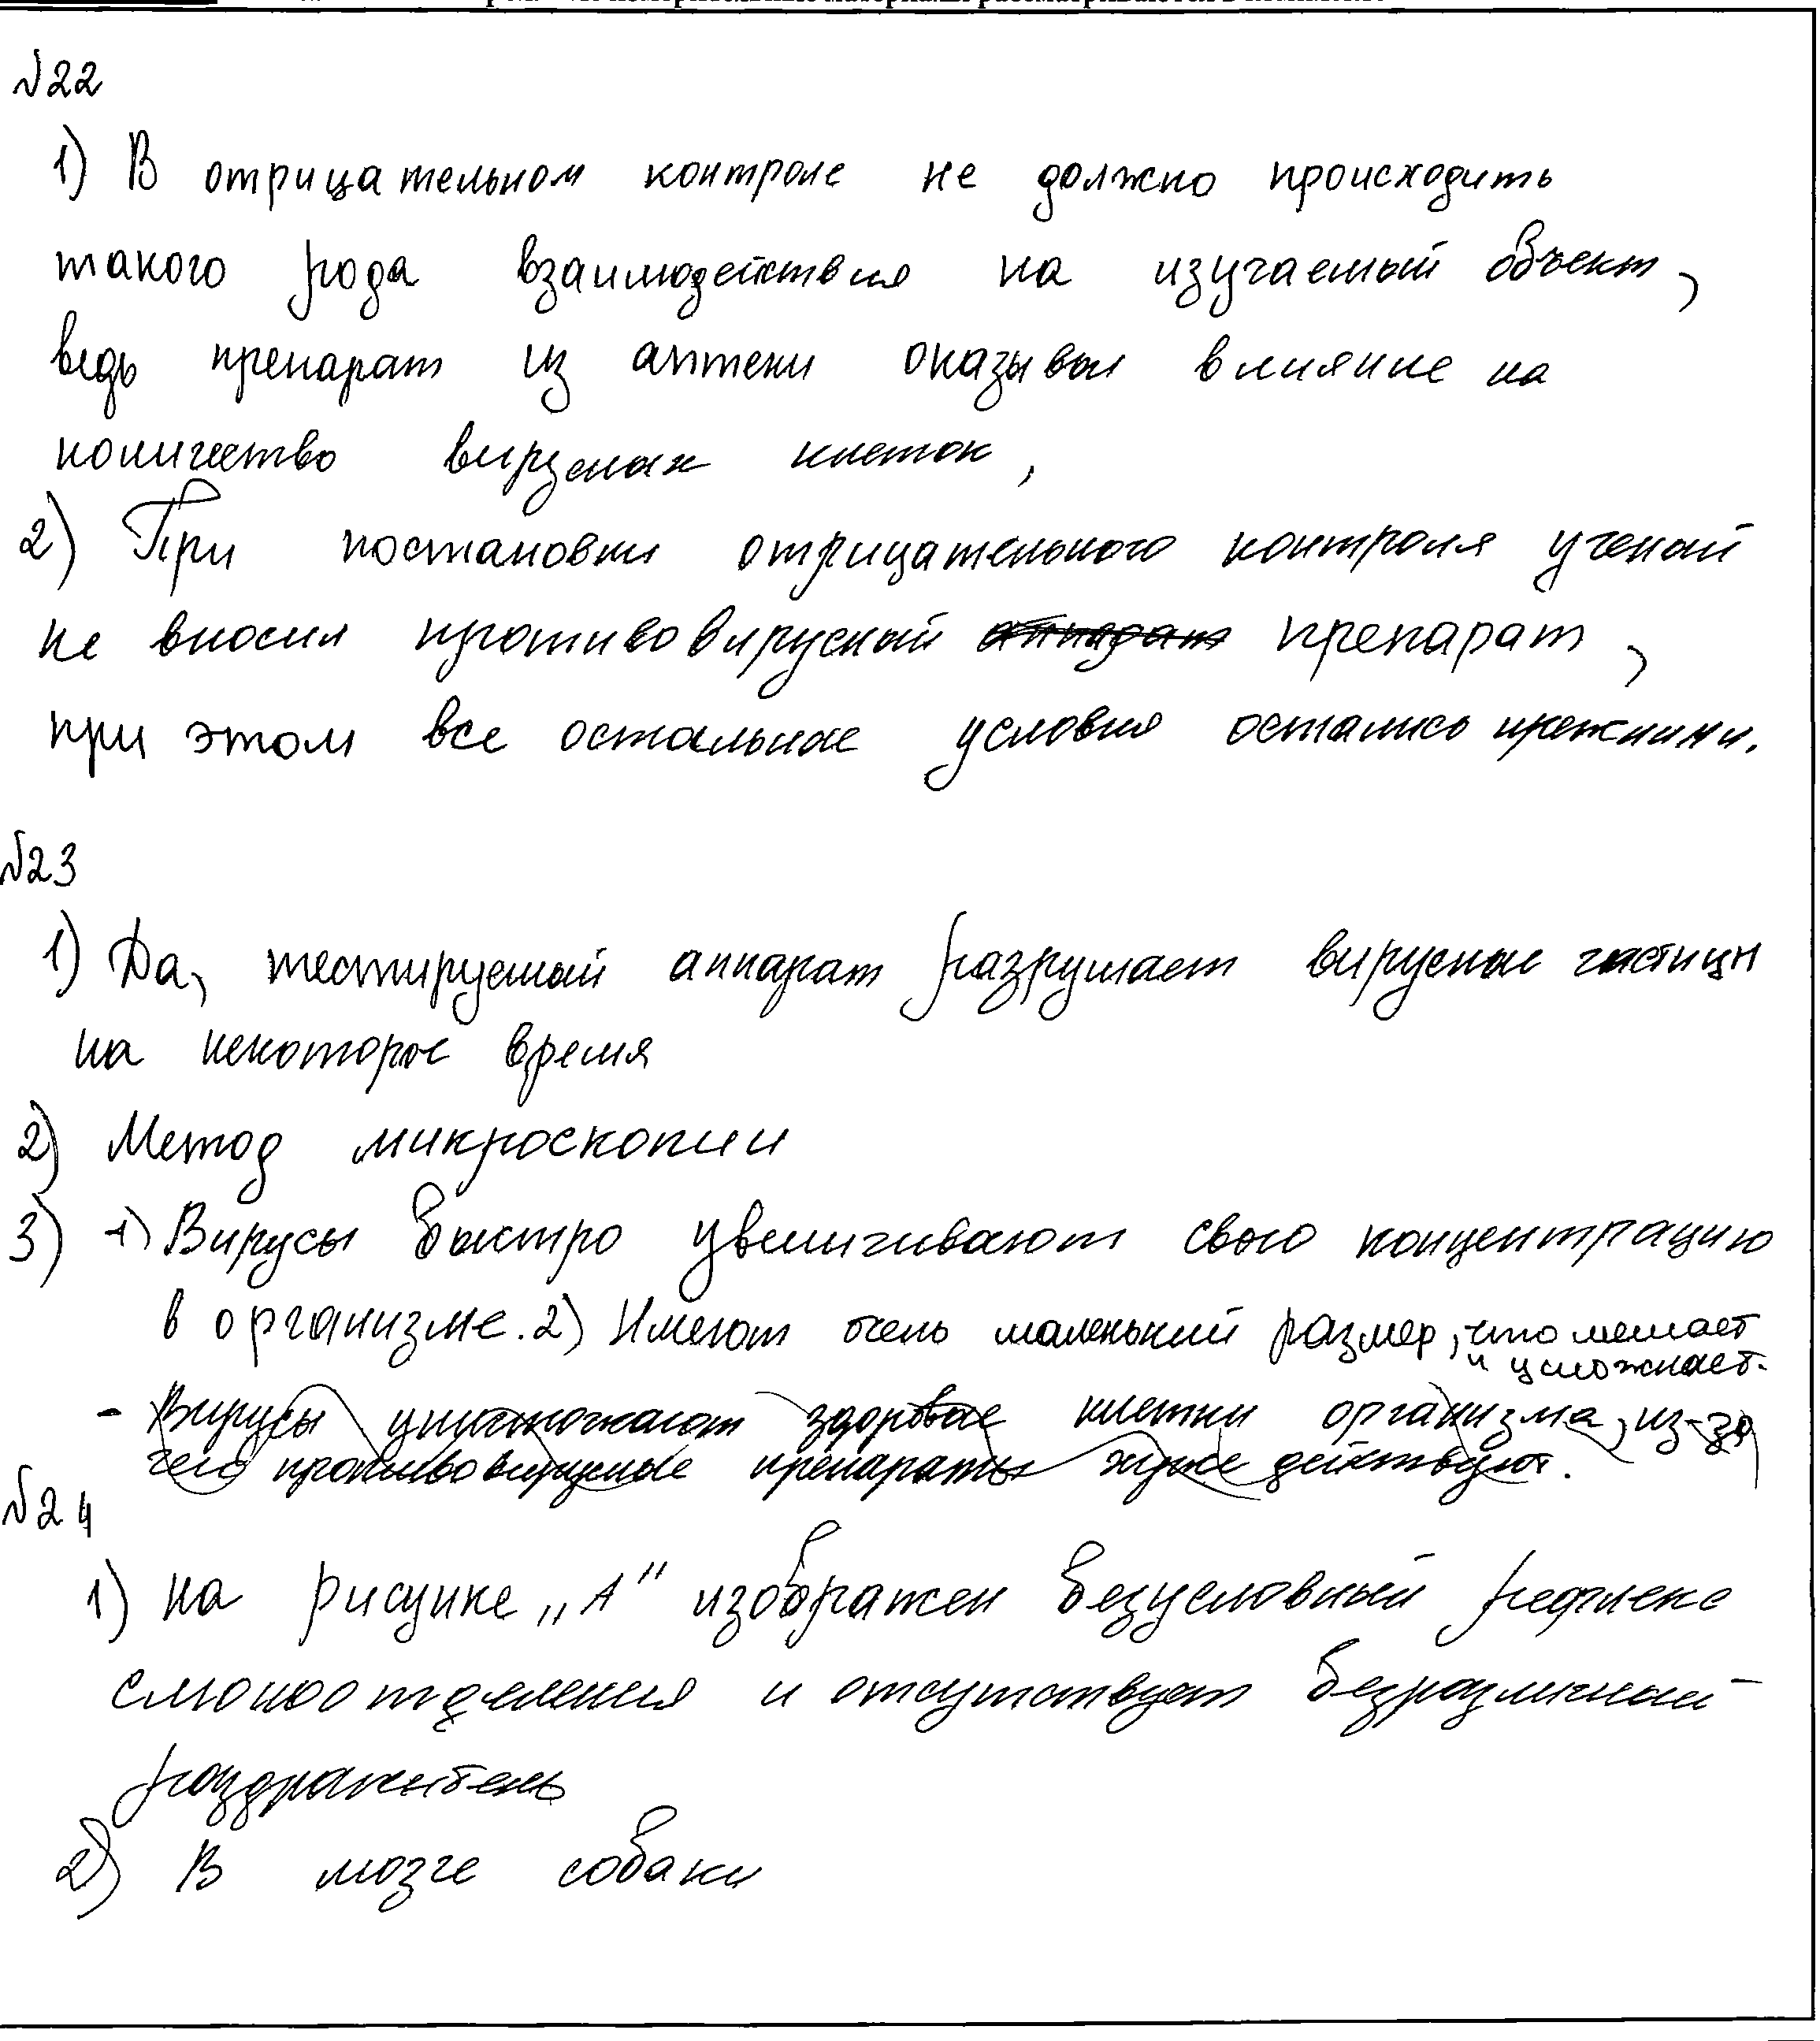 №22
1) В отрицательном контроле не должно происходить
такого рода взаимодействия на изучаемый объект,
ведь препарат из аптеки оказывал влияние на
количество вирусных клеток,
2) При постановки отрицательного контроля ученый
не вносил противовирусный аппарат препарат,
при этом все остальные условия остались прежними.
№23
1) Да, тестируемый аппарат разрушает вирусные частицы
на некоторое время
2) Метод микроскопии
3) 1) Вирусы быстро увеличивают свою концентрацию
в организме. 2) Имеют очень маленький размер, что мешает
и усложняет.
- Вирусы уничтожают здоровые клетки организма, из-за
чего противовирусные препараты хуже действуют.
№24
1) на рисунке „А" изображен безусловный рефлекс
слюноотделения и отсутствует безразличный
раздражитель
2) В мозге собаки